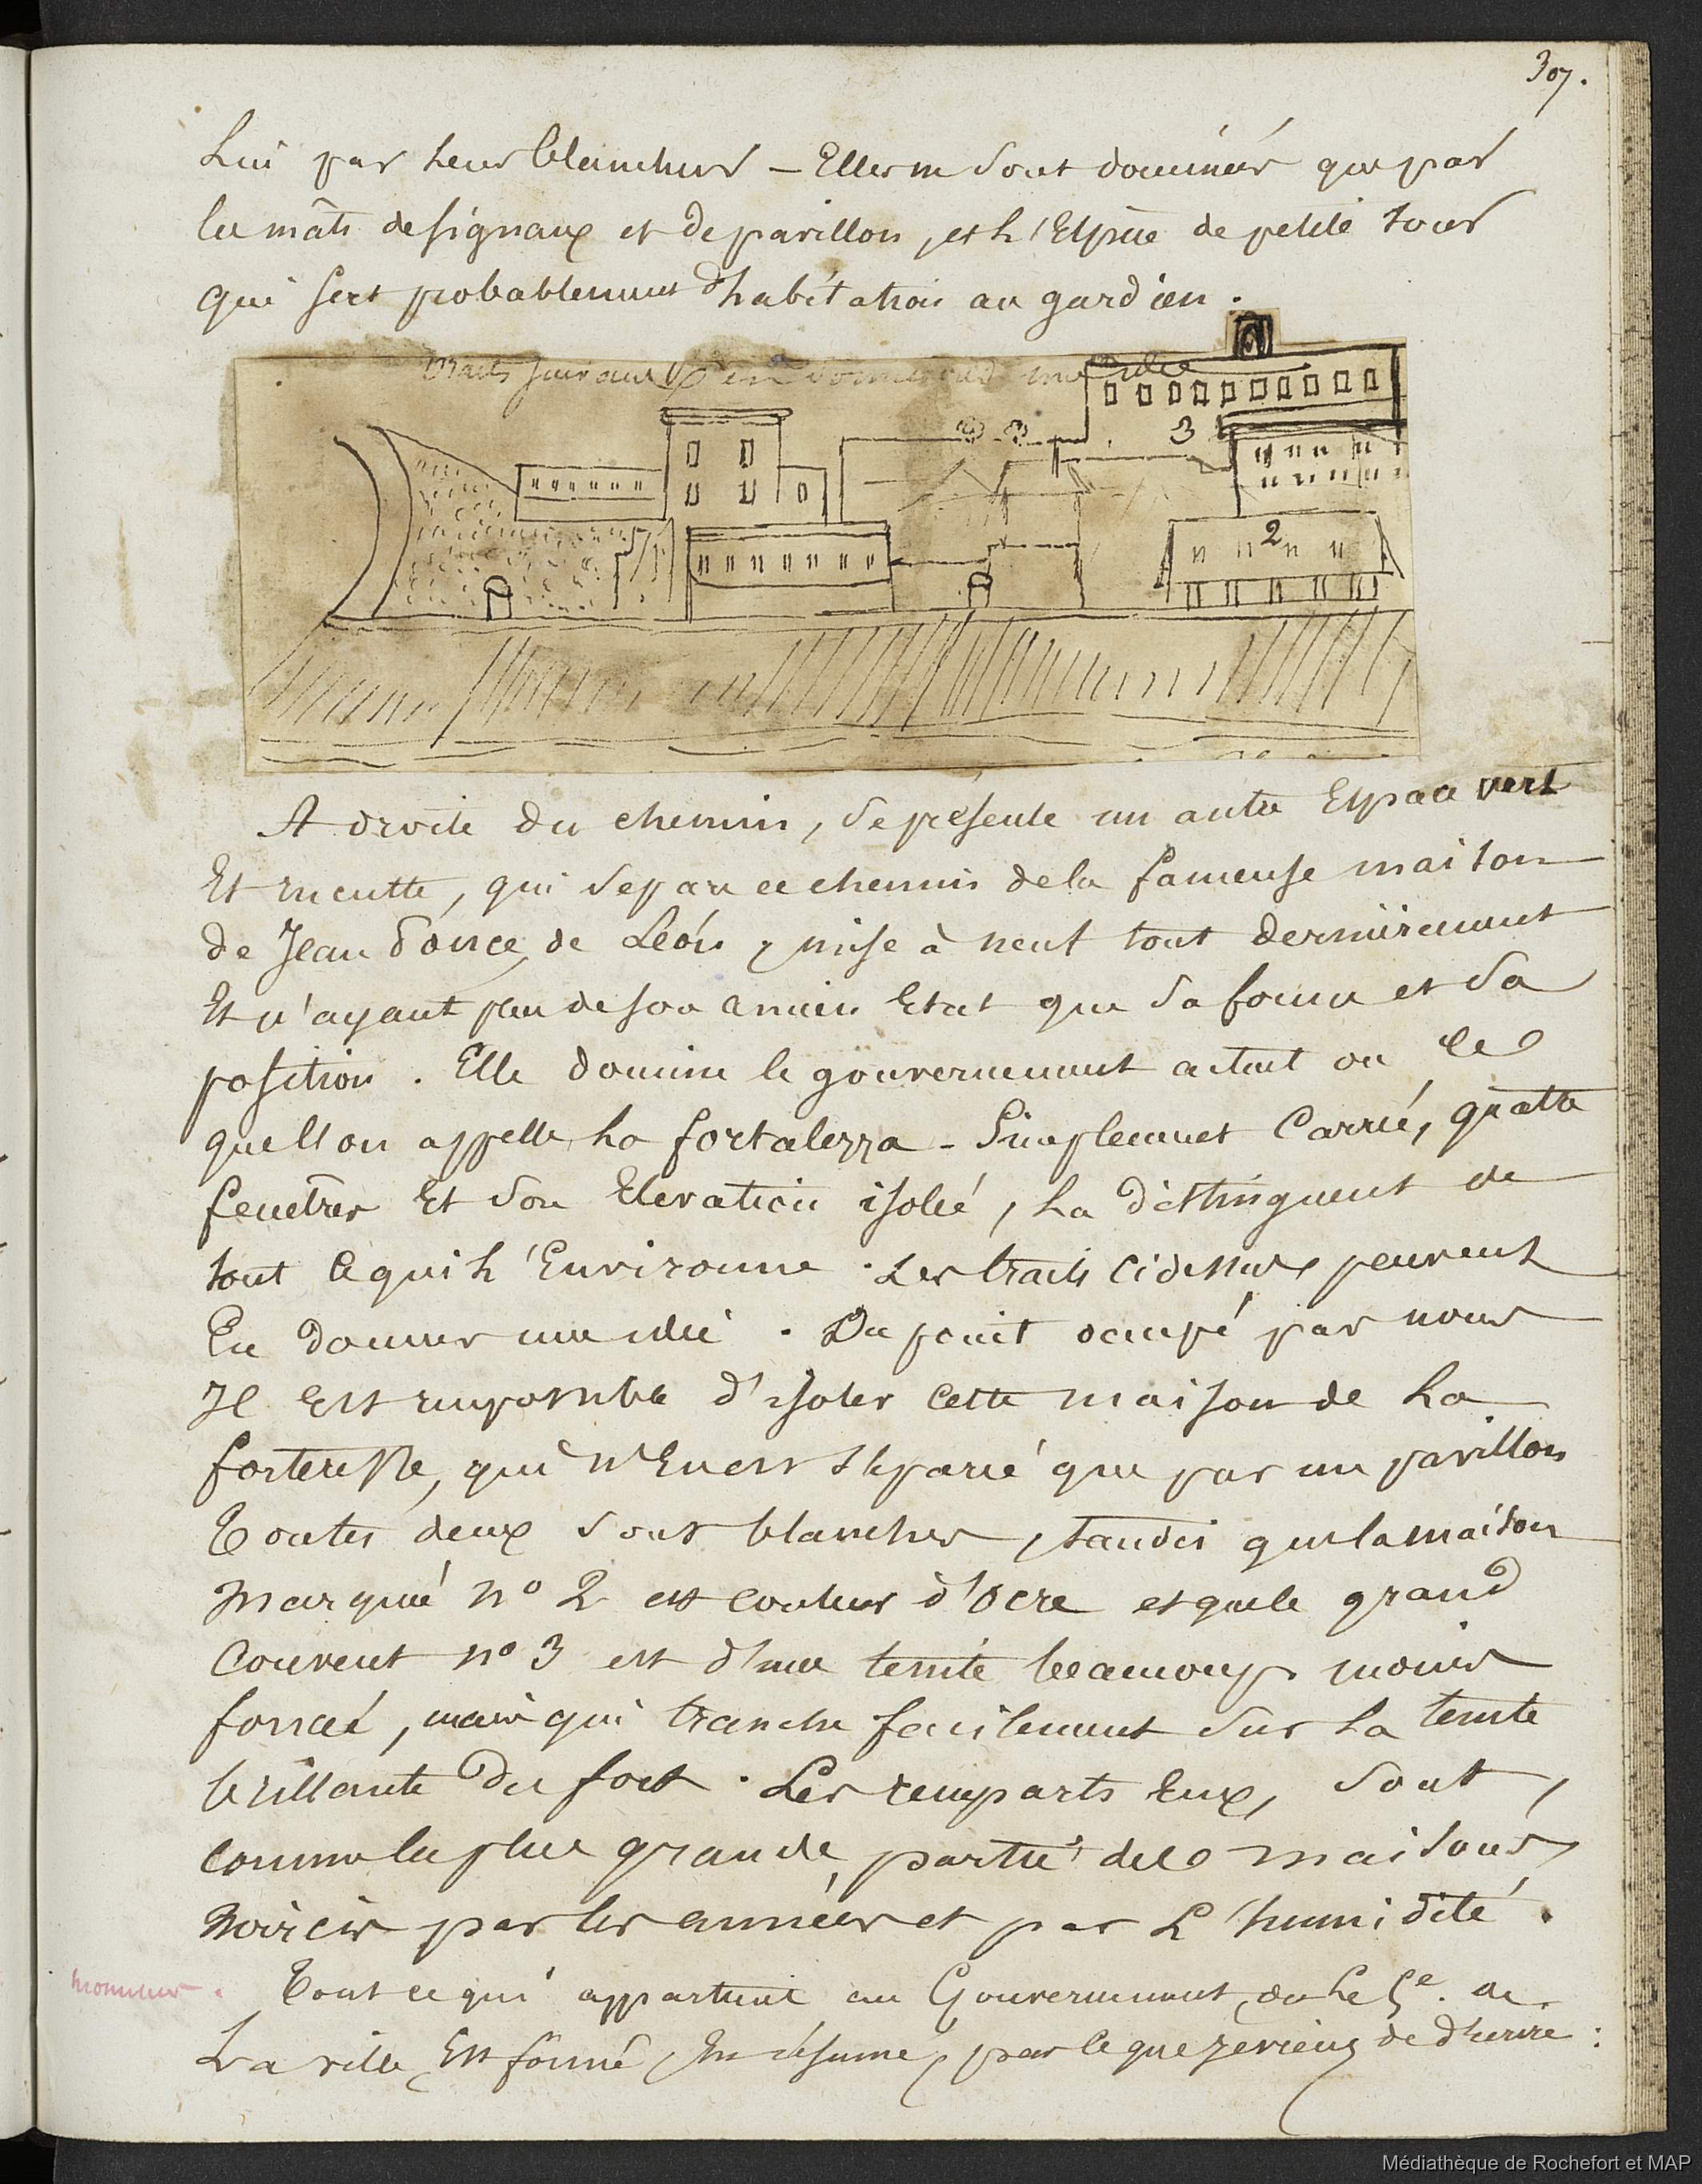 307.
Lui par leur blancheur – Elles ne sont dominées que par
les mâts de signaux et de pavillon, et l'Espèce de petite tour
qui sert probablement d'habitation au gardien.
traits suivants en donneront une idée
3
2
A droite du chemin, se présente un autre Espace vert
Et inculte, qui separe ce chemin de la fameuse maison
de Jean Ponce de Léon, mise à neuf tout dernièrement
Et n'ayant plus de son ancien Etat que sa forme et sa
position. Elle domine le gouvernement actuel ou ce
que l'on appelle la fortalezza – Simplement Carrée, quatre
fenetres Et son Elevation isolée, la distinguent de
tout ce qui l'Environne. Les traits ci dessus peuvent
En donner une idée. Du point occupé par nous
Il Est impossible d'isoler cette maison de la
forteresse, qui n'En est séparée que par un pavillon
Toutes deux sont blanches, tandis que la maison
Marquée n° 2 est couleur d'Ocre et que le grand
Couvent n° 3 est d'une teinte beaucoup moins
foncée, mais qui tranche facilement sur la teinte
brillante du fort. Les remparts Eux, sont,
comme la plus grande partie des maisons,
Noircis par les années et par L'humidité.
Tout ce qui appartient au Gouvernement, de
La ville Est formé, En résumé, par ce que je viens de décrire :
Médiathèque de Rochefort et MAP